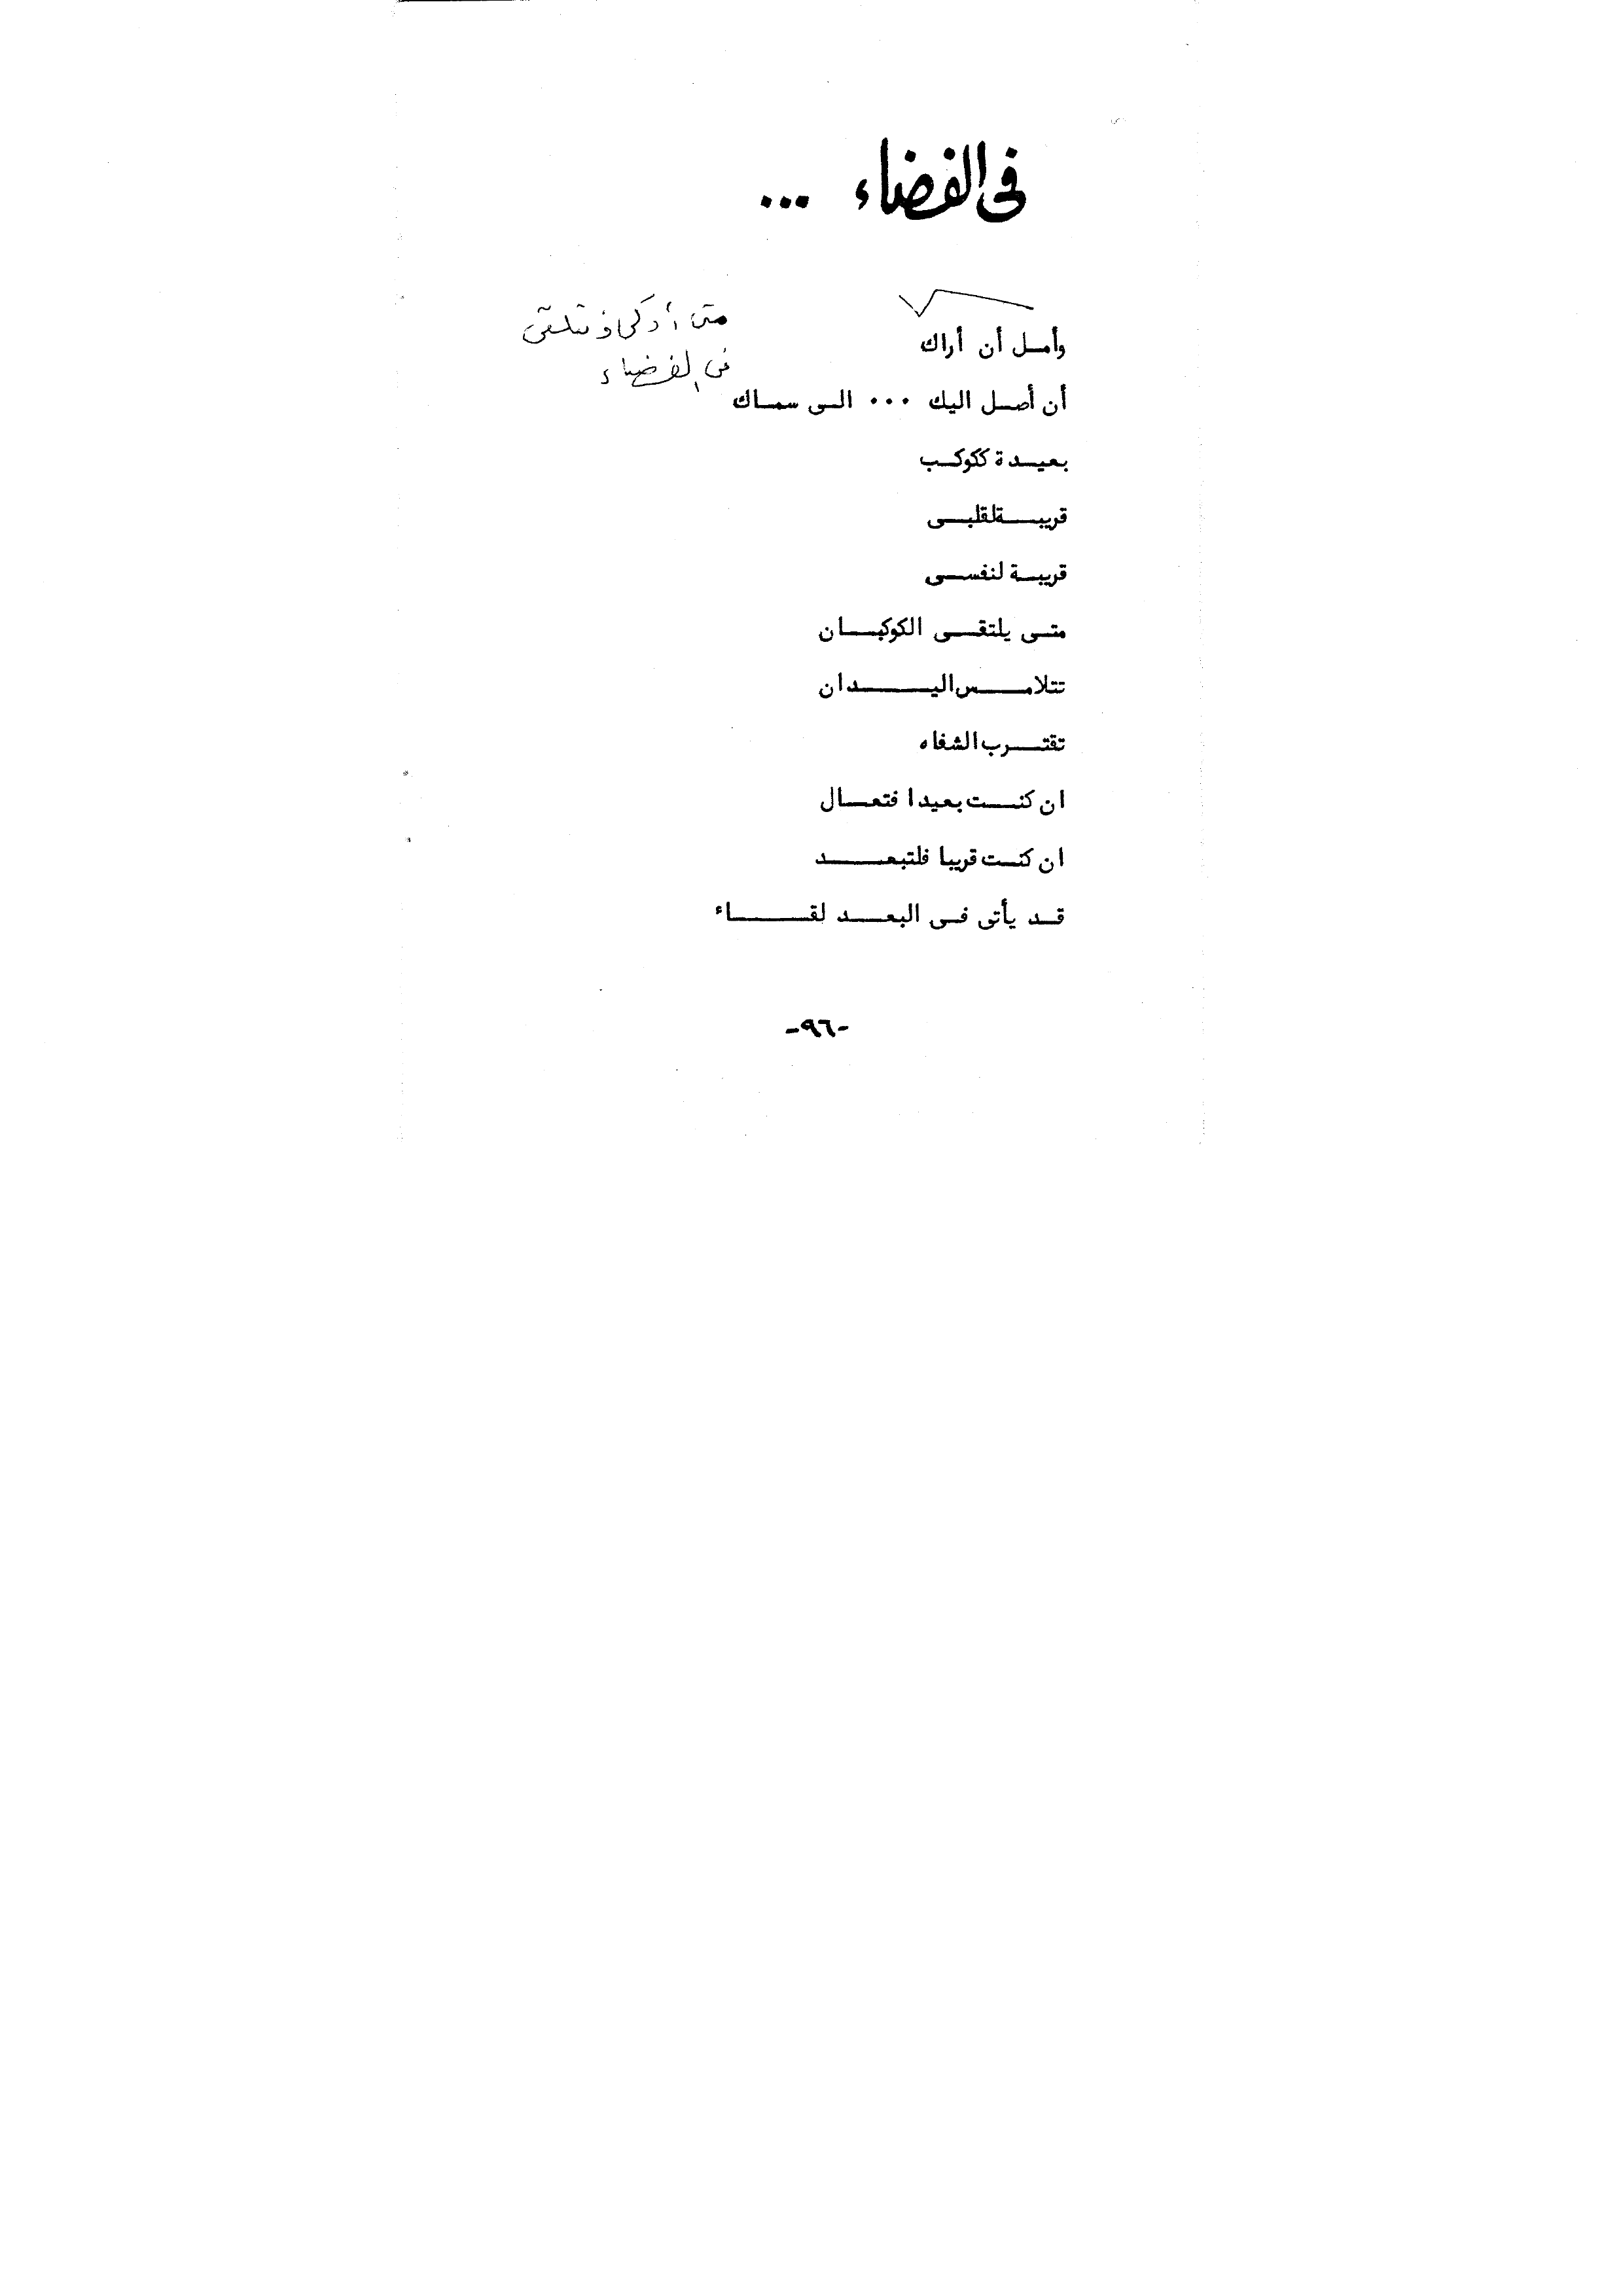 فى الفضاء ...
متى
فى الفضاء
وأمل أن أراك
أن أصل اليك ... الى سماك
بعيدة ككوكب
قريبة لقلبى
قريبة لنفسى
متى يلتقى الكوكبان
تتلامس اليدان
تقترب الشفاه
ان كنت بعيدا فتعال
ان كنت قريبا فلتبعد
قد يأتى فى البعد لقاء
-٩٦-